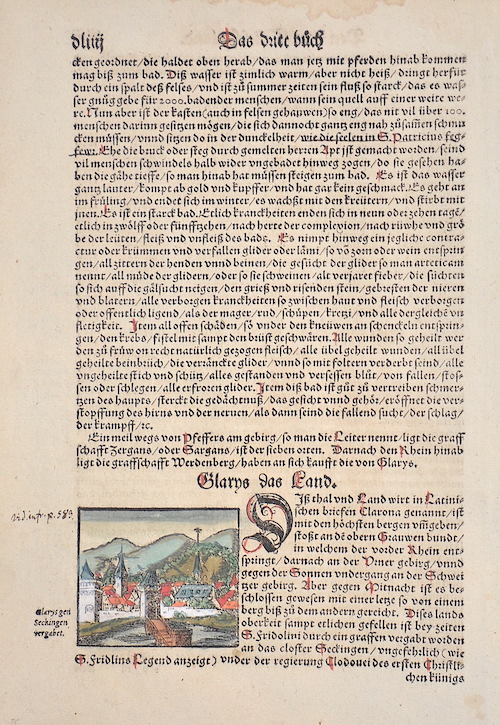 dliiij Das dritt bůch
cken geordnet/die haldet oben herab/das man jetz mit pferden hinab kommen
mag biß zum bad. Diß wasser ist zimlich warm/aber nicht heiß/dringt herfür
durch ein spalt deß felses/vnd ist zů summer zeiten sein fluß so starck/das es was-
ser gnůg gebe für 2000. badender menschen/wann sein quell auff einer weite we-
re. Nun aber ist der kasten (auch in felsen gehawen) so eng/das nit vil über 100.
menschen darinn gesitzen mögen/die sich dannocht gantz eng nah zůsamen schmu
cken müssen/vnnd sitzen da in der dunckelheit/wie die seelen in S. Patricius feg-
fewr. Ehe die bruck oder steg durch gemelten herren Apt ist gemacht worden/seind
vil menschen schwindels halb wider vngebadet hinweg zogen/do sie gesehen ha-
ben die gähe tieffe/so man hinab hat müssen steigen zum bad. Es ist das wasser
gantz lauter/kompt ab gold vnd kupffer/vnd hat gar kein geschmack. Es geht an
im früling/vnd endet sich im winter/es wachßt mit den kreütern/vnd stirbt mit
jnen. Es ist ein starck bad. Etlich kranckheiten enden sich in neun oder zehen tagē/
etlich in zwölff oder fünffzehen/nach herte der complexion/nach rüwhe vnd grö
be der leüten/fleiß vnd vnfleiß des bads. Es nimpt hinweg ein jegliche contra-
ctur oder krümmen vnd verfallen glider oder läm/so vō zorn oder wein entsprin
gen/all zittern der henden vnnd beinen/die gesücht der glider so man arteticam
nennt/all müde der glidern/oder so sie schweinen/alt verjaret fieber/die süchten
so sich auff die gälsucht neigen/den grieß vnd risenden stein/gebresten der nieren
vnd blatern/alle verborgen kranckheiten so zwischen haut vnd fleisch verborgen
oder offentlich ligend/als der mager/rud/schüpen/kretzi/vnd alle dergleichē vn
fletigkeit. Item all offen schäden/so vnder den kneüwen an schenckeln entsprin-
gen/den krebs/fistel mit sampt den brüst geschwären. Alle wunden so geheilt wer
den zů früw on recht natürlich gezogen fleisch/alle übel geheilt wunden/all übel
geheilte beinbrüch/die verränckte glider/vnnd so mit foltern verderbt seind/alle
vngeheilte stich vnd schütz/alles gestanden vnd versessen blůt/von fallen/stos-
sen oder schlegen/alle erfroren glider. Item diß bad ist gůt zů vertreiben schmer-
tzen des haupts/sterckt die gedächtnuß/das gesicht vnnd gehör/eröffnet die ver-
stopffung des hirns vnd der neruen/als dann seind die fallend sucht/der schlag/
der krampff/ꝛc.
Ein meil wegs von Pfeffers am gebirg/so man die Leiter nennt/ligt die graff
schafft Zergans/oder Sargans/ist der siben orten. Darnach den Rhein hinab
ligt die graffschafft Werdenberg/haben an sich kaufft die von Glarys.
Glarys das Land.
Diß thal vnd Land wirt in Latini-
schen briefen Clarona genannt/ist
mit den höchsten bergen vmgeben/
stoßt an dē obern Grauwen bundt/
in welchem der vorder Rhein ent-
springt/darnach an der Vrner gebirg/vnnd
gegen der Sonnen vndergang an der Schwei
tzer gebirg. Aber gegen Mitnacht ist es be-
schlossen gewesen mit einer letze so von einem
berg biß zů dem andern gereicht. Dises lands
oberkeit sampt etlichen gefellen ist bey zeiten
S. Fridolini durch ein graffen vergabt worden
an das closter Seckingen/vngefehrlich (wie
S. Fridlins Legend anzeigt) vnder der regierung Clodouei des ersten Christli-
chen künigs
Glarys gen
Seckingen
vergabet.